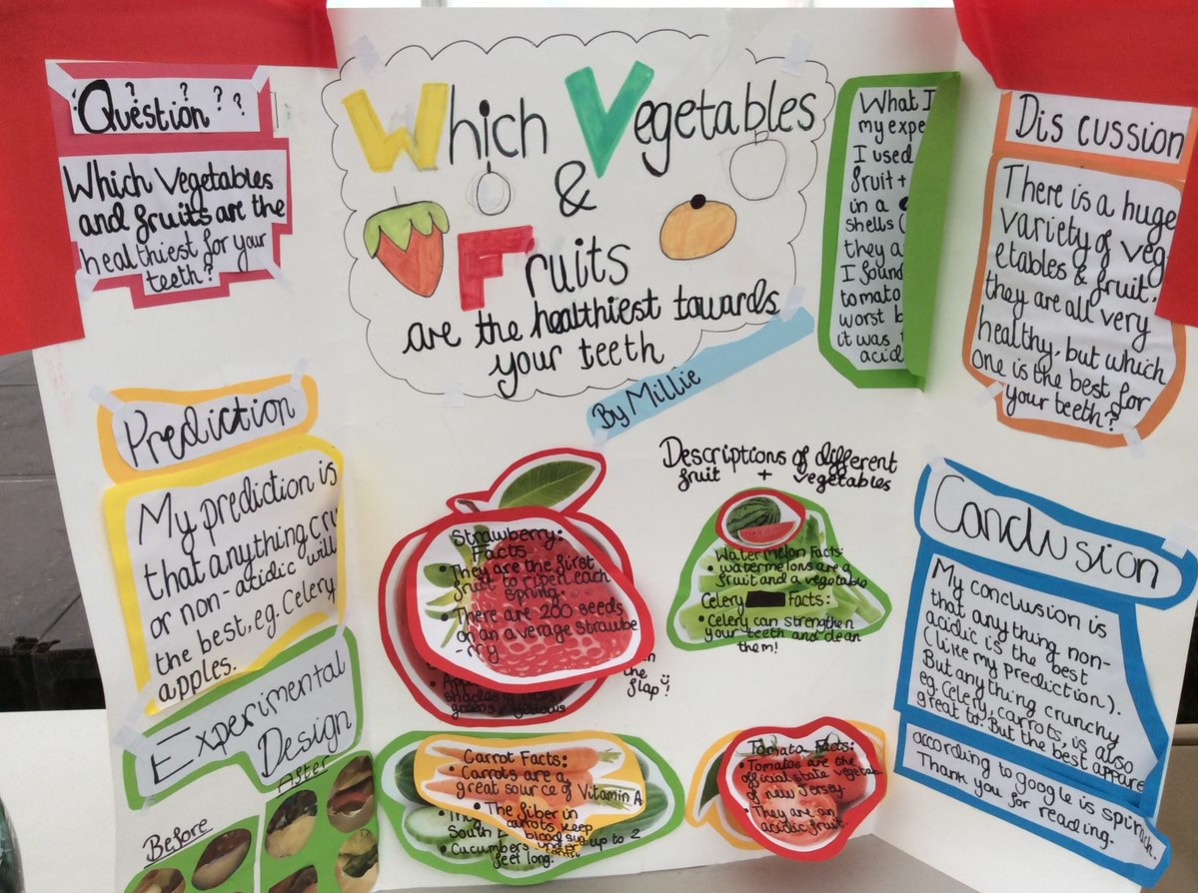 Question ? ? ? ?
Which Vegetables
and fruits are the
healthiest for your
teeth?
Prediction
My prediction is
that anything cru
or non-acidic will
the best, eg. Celery
apples.
Experimental
Design
Before
After
Which Vegetables
&
Fruits
are the healthiest towards
your teeth
By Millie
Strawberry:
Facts
• They are the first
fruit to ripen each
spring.
• There are 200 seeds
on an average strawbe
-rry
the
flap!
Descriptions of different
fruit + vegetables
Watermelon Facts:
• watermelons are a
fruit and a vegetable
Celery Facts:
• Celery can strengthen
your teeth and clean
them!
Carrot Facts:
• Carrots are a
great source of Vitamin A
• The fiber in
carrots keep
blood sug
under
South
• Cucumbers up to 2
feet long.
Tomato Facts:
• Tomatos are the
official state vegetab
of new Jersey
• They are an
acidic fruit.
What I
my expe
I used
fruit +
in a
shells (
they a
I found
tomato
worst b
it was
acid
Discussion
There is a huge
variety of veg
etables & fruit,
they are all very
healthy, but which
one is the best for
your teeth?
Conclusion
My conclusion is
that anything non-
acidic is the best
(like my prediction).
But anything crunchy
eg. Celery, carrots, is also
great to! But the best appare
according to google is spinach.
Thank you for reading.